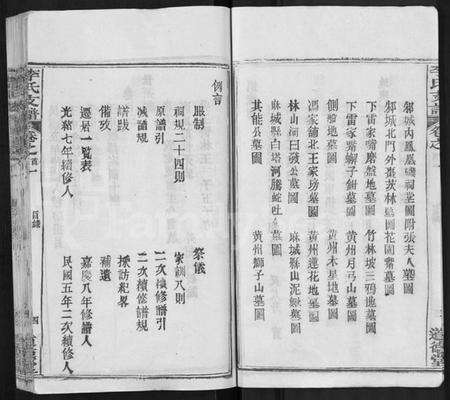 李氏支譜
卷之
邾城內鳳凰磯祠堂圖附張夫人墓圖
邾城北門外棗茨林墓圖花園墓圖
下雷家嘴磨盤地墓圖
竹林坡三鴉地墓圖
下雷家嘴
墓圖
黃州月弓山墓圖
側船地墓圖
黃州木星地墓圖
馮家舖北王家坊墓圖
黃州蓮花地墓圖
林山河曰發公墓圖
麻城縣山泥
墓圖
麻城縣白塔河騰蛇吐
墓圖
其能公墓圖
黃州獅子山墓圖
三
道德堂
例言
服制
祭儀
祠規二十四則
家訓八則
原譜引
二次續修譜引
減譜規
二次續修譜規
譜跋
採訪紀畧
備攷
補遺
遷居一覽表
嘉慶八年修譜人
光緒七年續修人
民國五年二次續修人
李氏支譜
卷之首一
目錄
四
道德堂